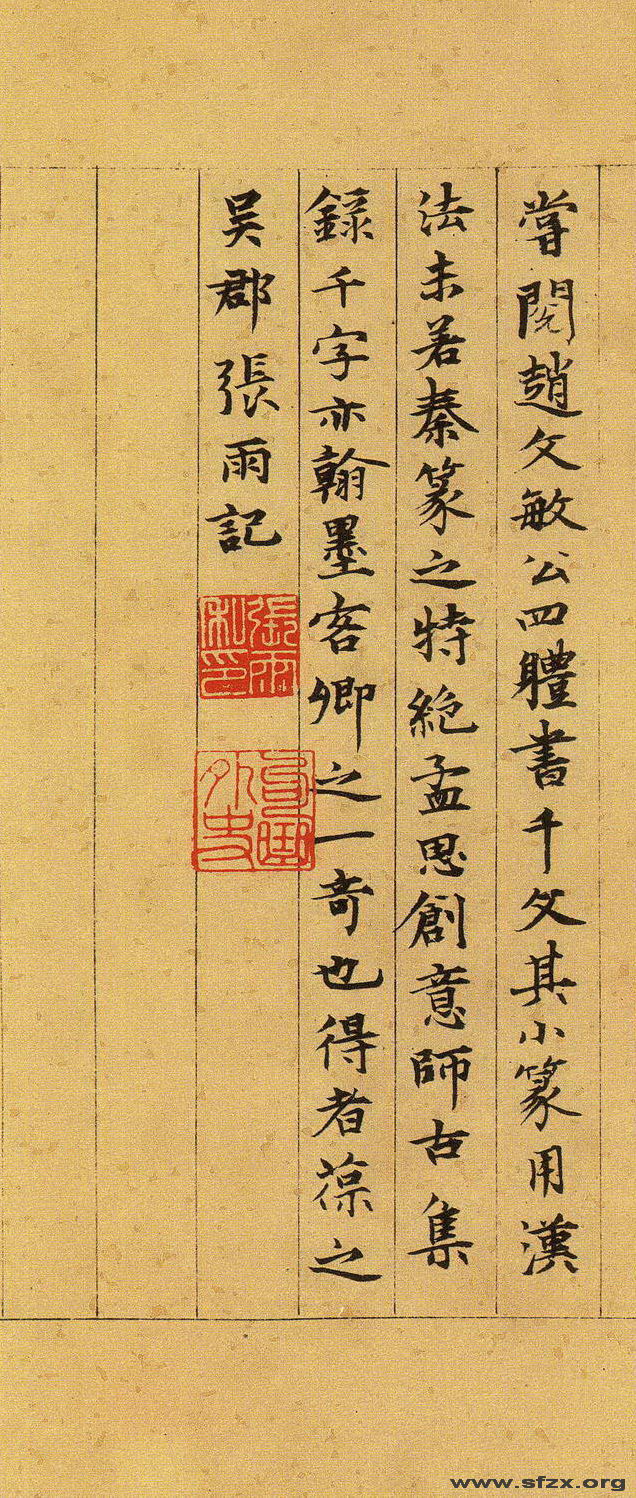 甞閱趙文敏公四體書千文其小篆用漢
法未若秦篆之特絶孟思創意師古集
録千字亦翰墨客卿之一奇也得者葆之
吳郡張雨記
張雨私印
句曲外史
www.sfzx.org